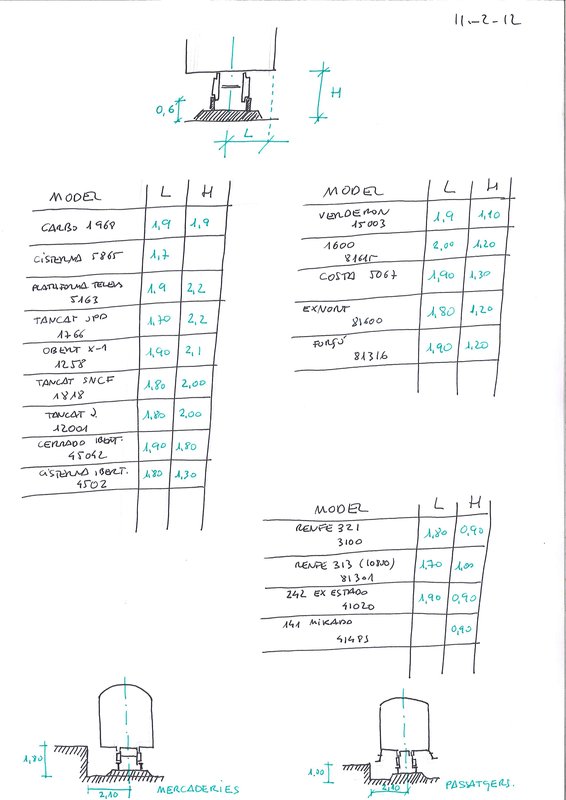 11-2-12
0,6
H
L
MODEL L H
CARBO 1968 1,9 1,9
CISTERNA 5865 1,7
PLATAFORMA
5163 1,9 2,2
TANCAT JPD
1766 1,70 2,2
OBERT X-1
1258 1,90 2,1
TANCAT SNCF
1818 1,80 2,00
TANCAT J.
12001 1,80 2,00
CERRADO IBERT.
45042 1,90 1,80
CISTERNA IBERT.
4502 1,80 1,30
MODEL L H
VERDERON
15003 1,9 1,10
1600
81615 2,00 1,20
COSTA 5067 1,90 1,30
EXNORT
81600 1,80 1,20
81316 1,90 1,20
MODEL L H
RENFE 321
3100 1,80 0,90
RENFE 313 (10800)
81301 1,70 1,00
242 EX ESTADO
41020 1,90 0,90
141 MIKADO
41483 0,90
1,80
2,10
MERCADERIES
1,00
2,10
PASSATGERS.